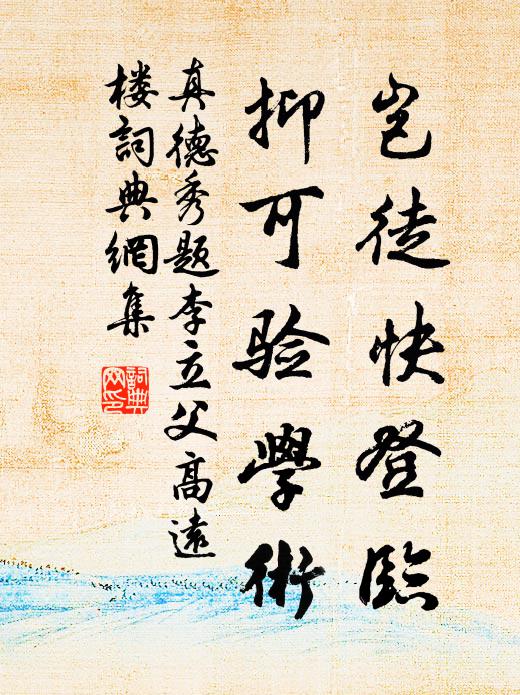 岂徒快登临
抑可验學術
真德秀题李立父高遠
楼詞典網集
詞典网印